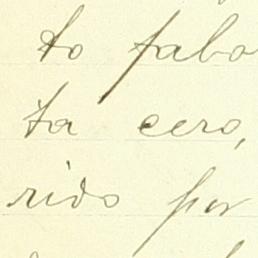 to fabo
ta cero,
rido por